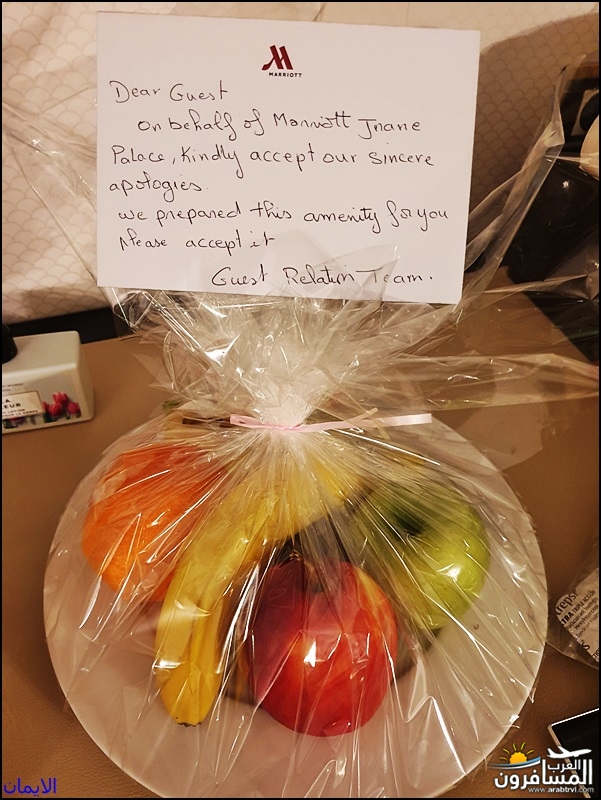 MARRIOTT
Dear Guest
on behalf of Marriott Jnane
Palace, Kindly accept our sincere
apologies.
we prepared this amenity for you
Please accept it
Guest Relation Team.
الايمان
العرب
المسافرون
www.arabtrvl.com